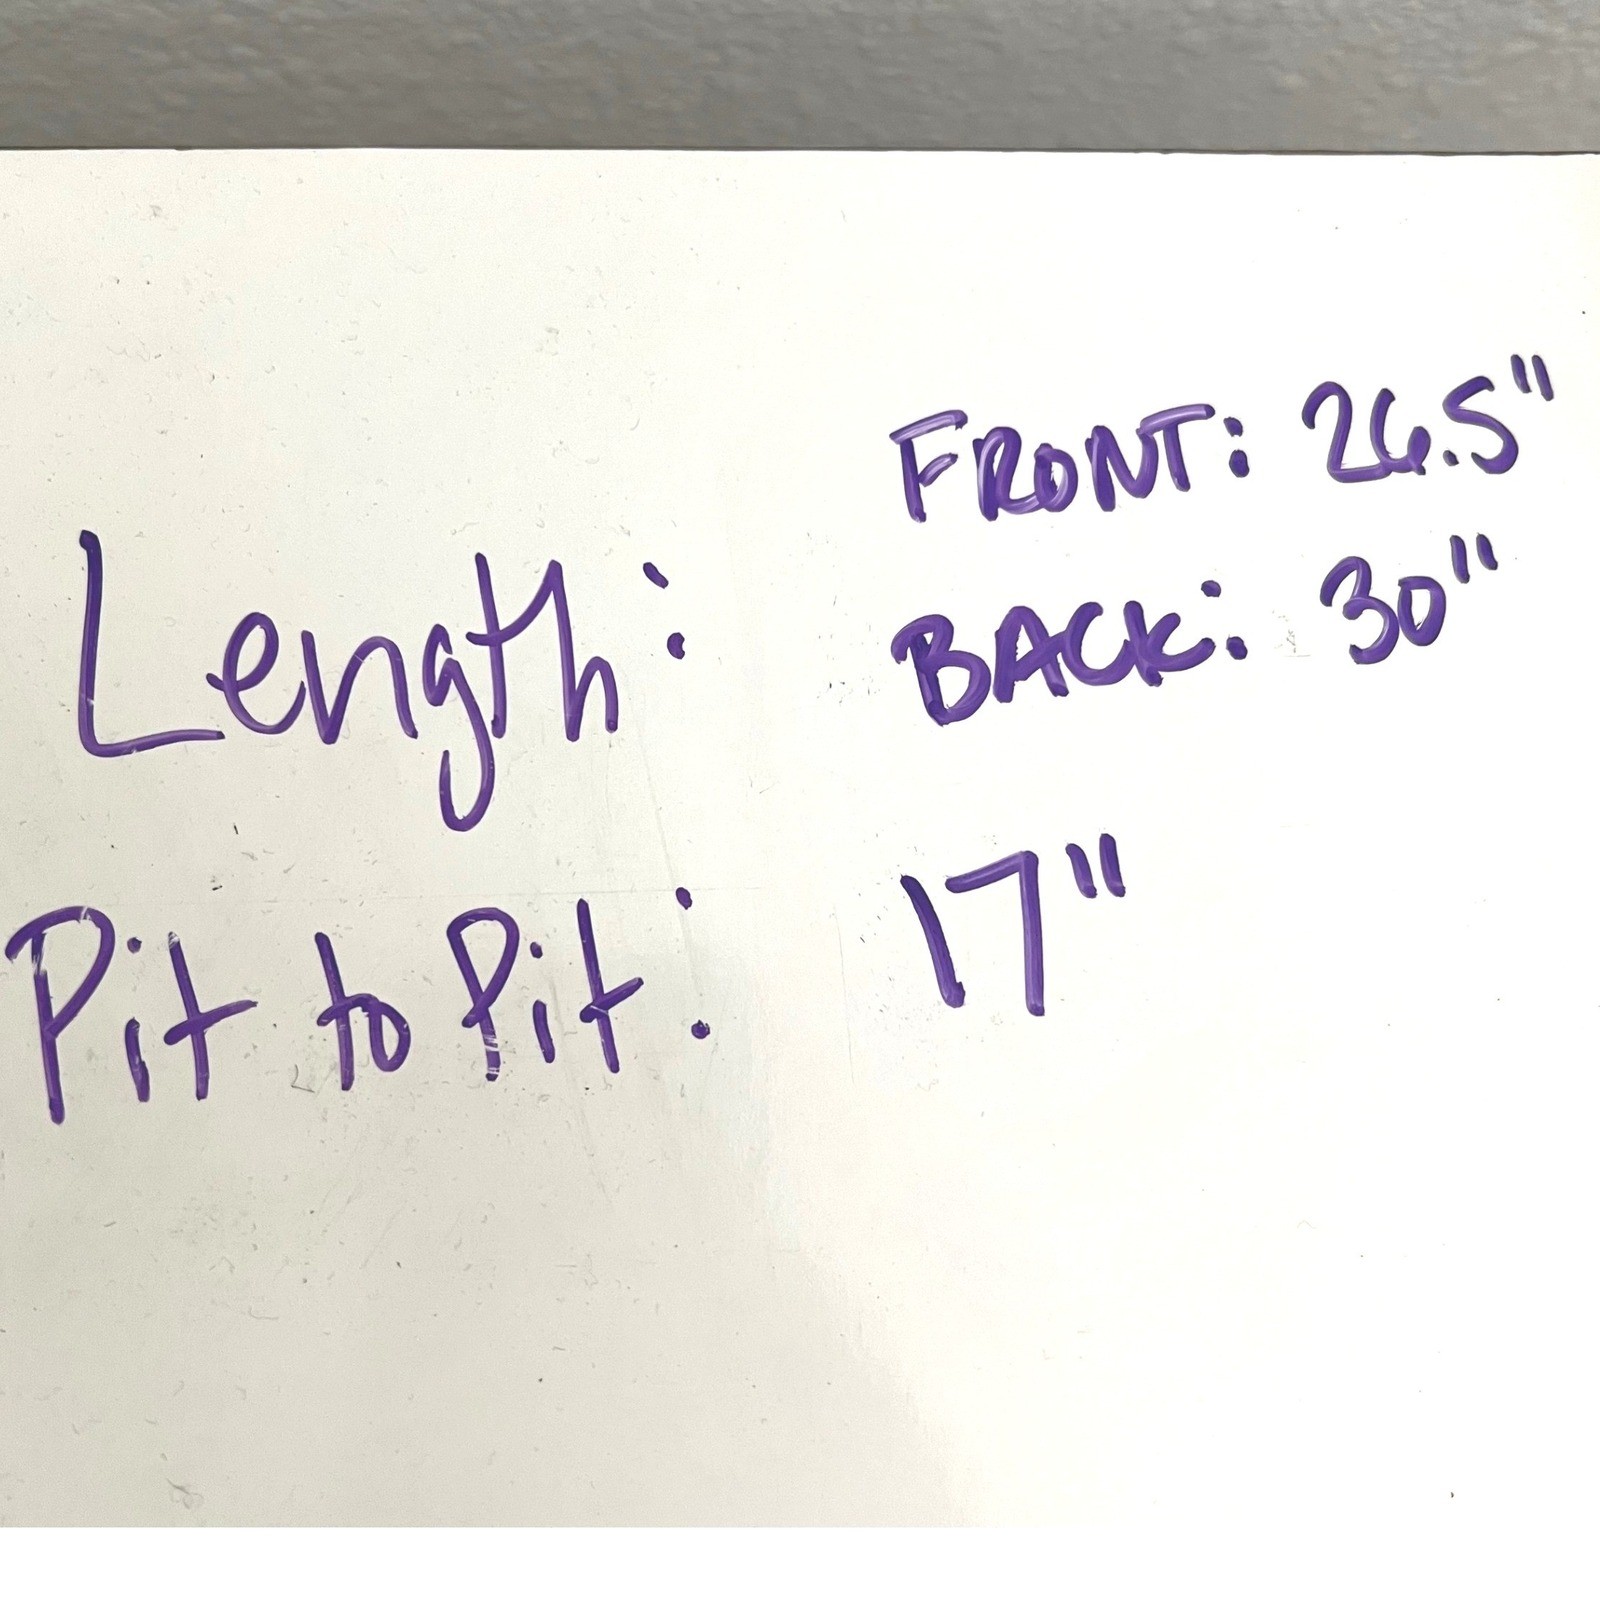 FRONT: 26.5"
Length: BACK: 30"
Pit to Pit: 17"